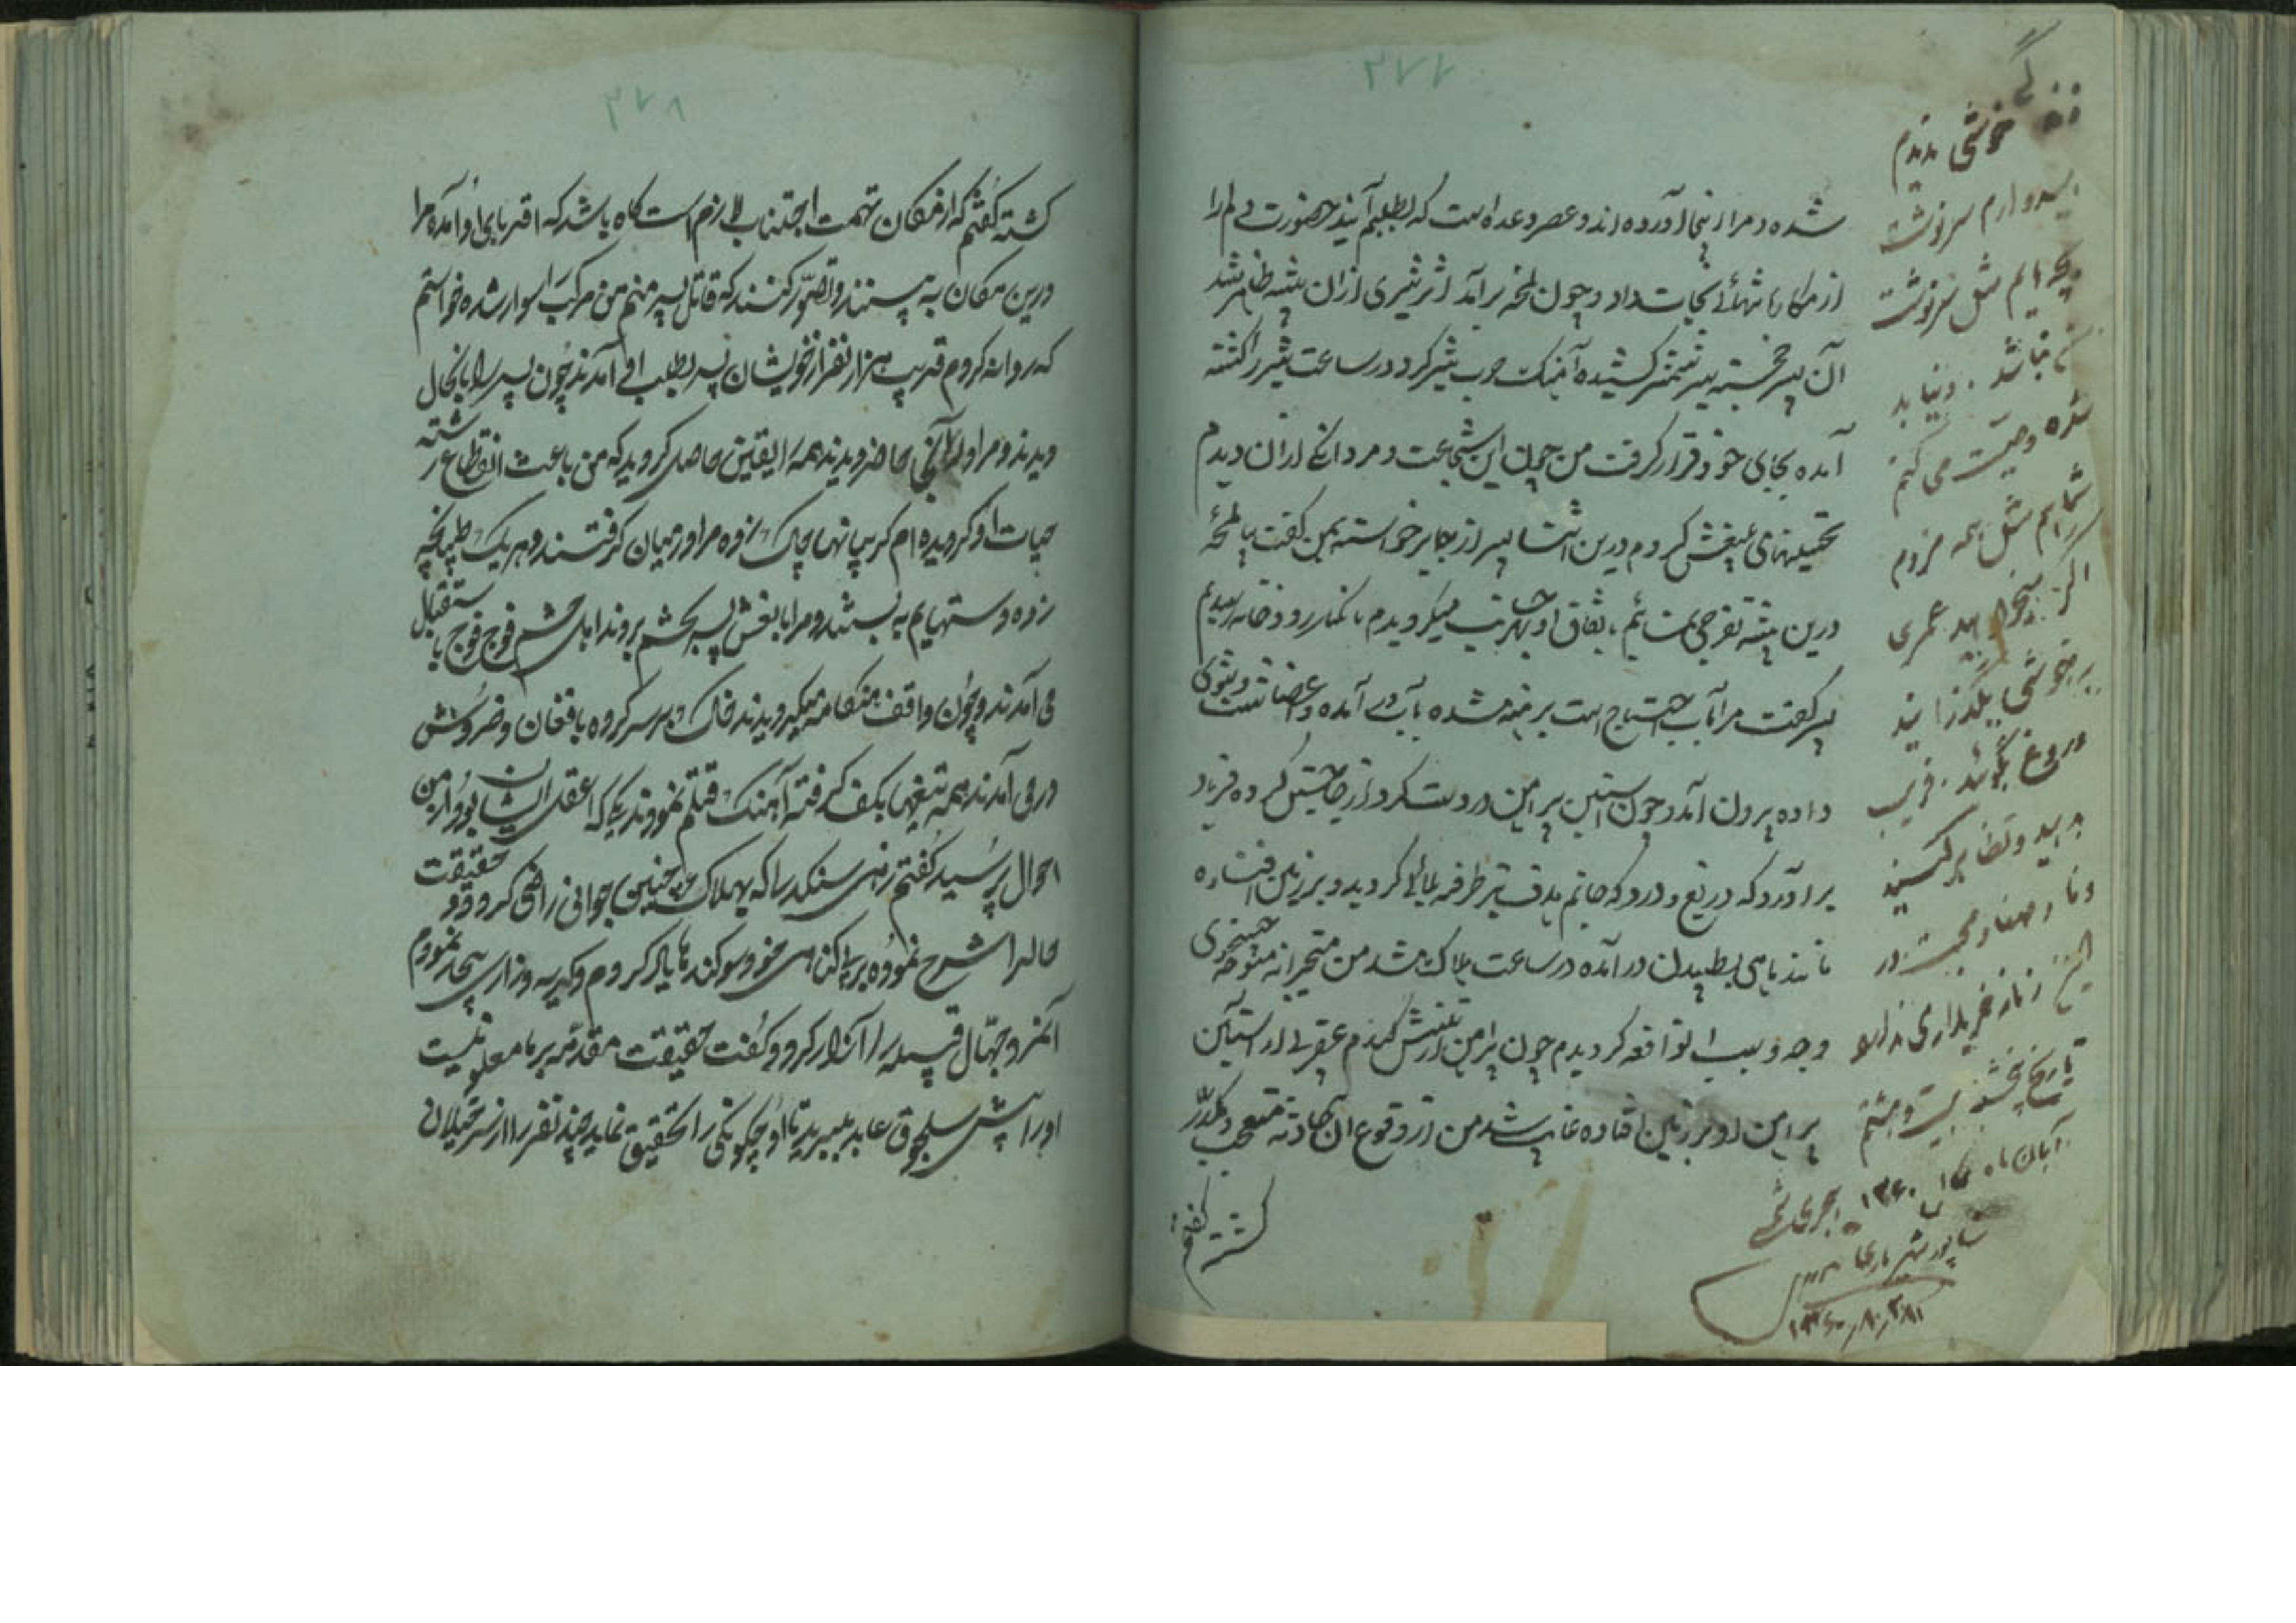 ۲۷۷
شده و مرا از پنجا آورده‌اند و عصر وعده است که بطلبم آیند حضورت دلم را
از مکاره تنهائی نجات داد و چون لمحه برآمد اثر شیری از ان بیشه ظاهر شد
آن پسر خجسته سیر شمشیر کشیده آهنک حرب شیر کرد در ساعت شیر را کشته
آمده بجای خود قرار گرفت من چون این شجاعت و مردانکی از ان دیدم
تحسینهای بلیغش کردم درین اثنا پسر از جا برخواسته بمن کفت بیا لمحهٔ
درین بیشه تفرجی نمائیم باتفاق او بهر جانب میکردیدم تا بکنار رودخانه رسیدیم
پسر کفت مرا بآب احتیاج است برهنه شده بآب در آمده و اعضا شست و شوی
داده بیرون آمد و چون استین پیراهن در دست کرد از جا جستن کرده فریاد
برآورد که دریغ و درد که جانم هدف تیر طرفه بلائی کردید و بر زمین افتاده
مانند ماهی بطپیدن در آمده در ساعت هلاک شد من متحیرانه متوجه جستجوی
وجه و سبب ان واقعه کردیدم چون پیراهن از تنش کندم عقربی از استین
پیراهن او بر زمین افتاده غایب شد من از وقوع ان حادثه متعجب و مکدر
کشته کفتم
زندگی
خوشی ندیدم
امیدوارم سرنوشت
بچه‌هایم مثل سرنوشت
من نباشد. و نیا ید
شده وصیت می کنم
شما هم مثل همه مردم
اگر میخواهید عمری
بر خوشی بگذرانید
دروغ بگوئید. فریب
بدهید و تظاهر کنید
وفا و صفا و محبت در
این زمانه خریداری ندارد
تاریخ پنجشنبه بیست و هشتم
آبان ماه ۱۳۶۰ هجری شمسی
۱۳۶۰/۸/۲۸
۲۷۸
کشته کفتم که از مکان تهمت اجتناب لازم است کاه باشد که اقربای او آمده مرا
درین مکان به بینند و تصور کنند که قاتل پسر منم من مرکب را سوار شده خواستم
که روانه کردم قریب هزار نفر از خویشان پسر بطلب او آمدند چون پسر را بانحال
دیدند و مرا در آنجا حاضر دیدند همه را یقین حاصل کردید که من باعث انقطاع رشته
حیات او کردیده‌ام کریبانها چاک زده مرا در میان کرفتند و هر یک طپانچه
زده دستهایم به بستند و مرا با نعش پسر بحشم بردند اهل حشم فوج فوج باستقبال
می آمدند و چون واقف هنکامه میکردیدند خاک بر سر کرده بافغان و خروش
در می آمدند همه تیغها بکف کرفته آهنک قتلم نمودند یکی که اعقل ایشان بود از من
احوال پرسید کفتم زهی سنکدل را که بهلاک چنین جوانی راضی کردد و حقیقت
حال را شرح نموده بر بیکناهی خود سوکندها یاد کردم و کریه و زاری بیحد نمودم
آنمرد جهال قبیله را از آنزار کرد و کفت حقیقت مقدمه بر ما معلوم نیست
او را پیش سلجوق عابد ببرید تا او چکونکی را تحقیق نماید چند نفر را از سرخیلان